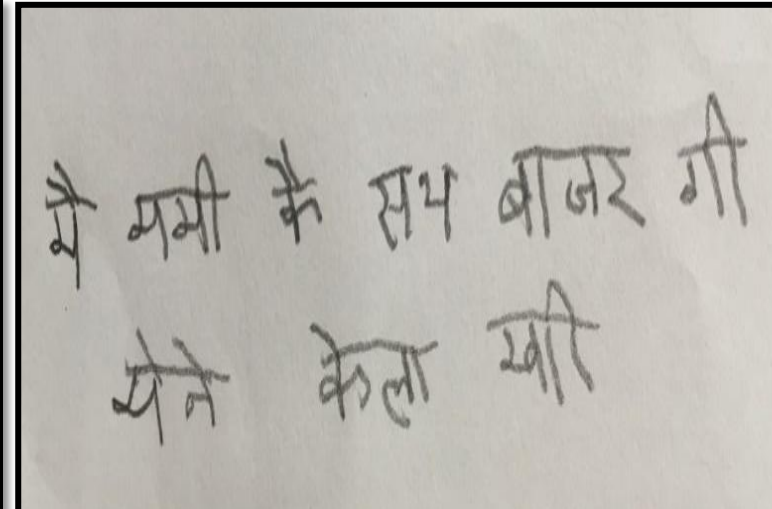 मै ममी के सथ बाजर गी
मेने केला खी